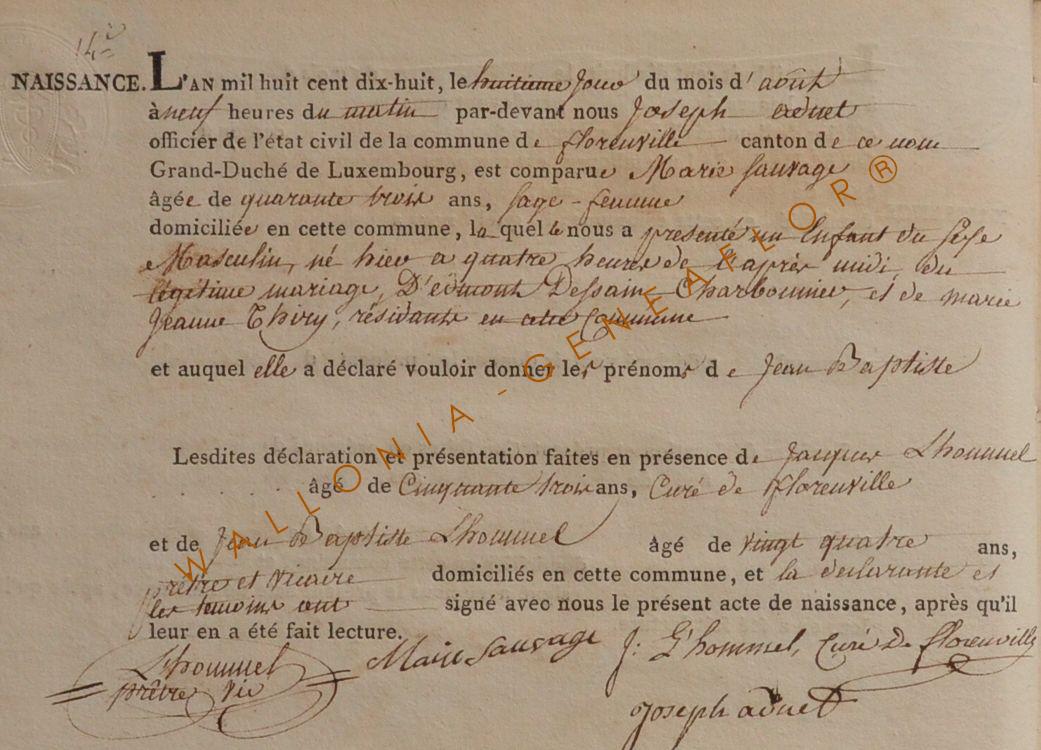 14e
NAISSANCE. L'AN mil huit cent dix-huit, le huitieme jour du mois d'août
à neuf heures du matin par-devant nous Joseph adnet
officier de l'état civil de la commune de florenville canton de ce nom
Grand-Duché de Luxembourg, est comparue Marie Sauvage
âgée de quarante trois ans, sage-femme
domiciliée en cette commune, la quelle nous a presenté un Enfant du sexe
Masculin, né hier a quatre heures de l'après midi, du
légitime mariage, D'edmont Dessain Charbonnier, et de marie
Jeanne Thiry, résidants en cette Commune
et auquel elle a déclaré vouloir donner les prénoms de Jean Baptiste
Lesdites déclaration et présentation faites en présence de Jacques Lhommel
âgé de Cinquante trois ans, Curé de florenville
et de Jean Baptiste Lhommel âgé de vingt quatre ans,
prêtre et vicaire domiciliés en cette commune, et la declarante et
les temoins ont signé avec nous le présent acte de naissance, après qu'il
leur en a été fait lecture.
Lhommel Marie Sauvage J: L'hommel, Curé De florenville
prêtre vic
Joseph adnet
WALLONIA-GENEAFLOR®